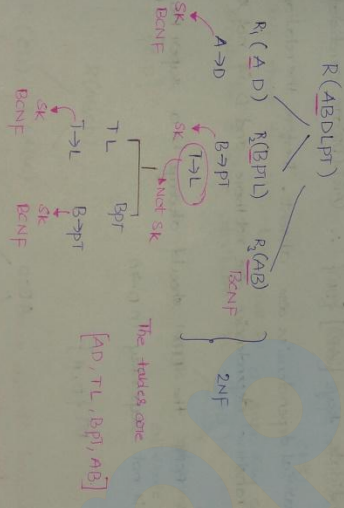 R(ABDLPT)
R₁(AD) R₂(BPTL) R₃(AB)
BCNF
} 2NF
A→D
SK
BCNF
B→PT
SK
T→L
Not SK
TL BPT
T→L
SK
BCNF
B→PT
SK
BCNF
The tables are
[AD, TL, BPT, AB]